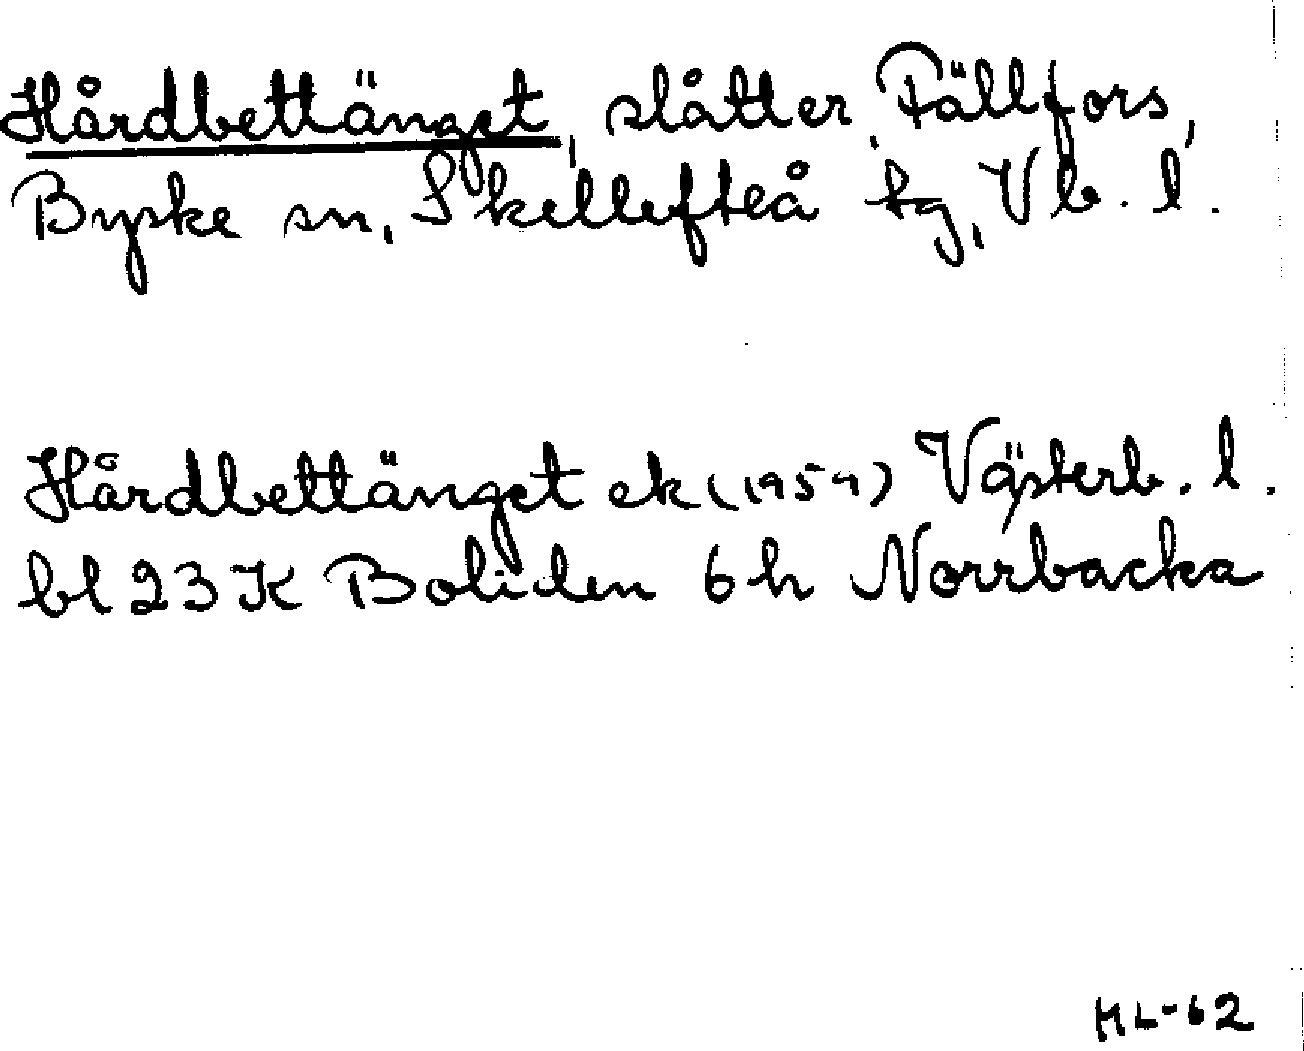 Hårdbettänget, slåtter, Fällfors,
Byske sn, Skellefteå tg, Vb. l.
Hårdbettänget ek (1959) Västerb. l.
bl 23 K Boliden 6 h Norrbacka
ML-62